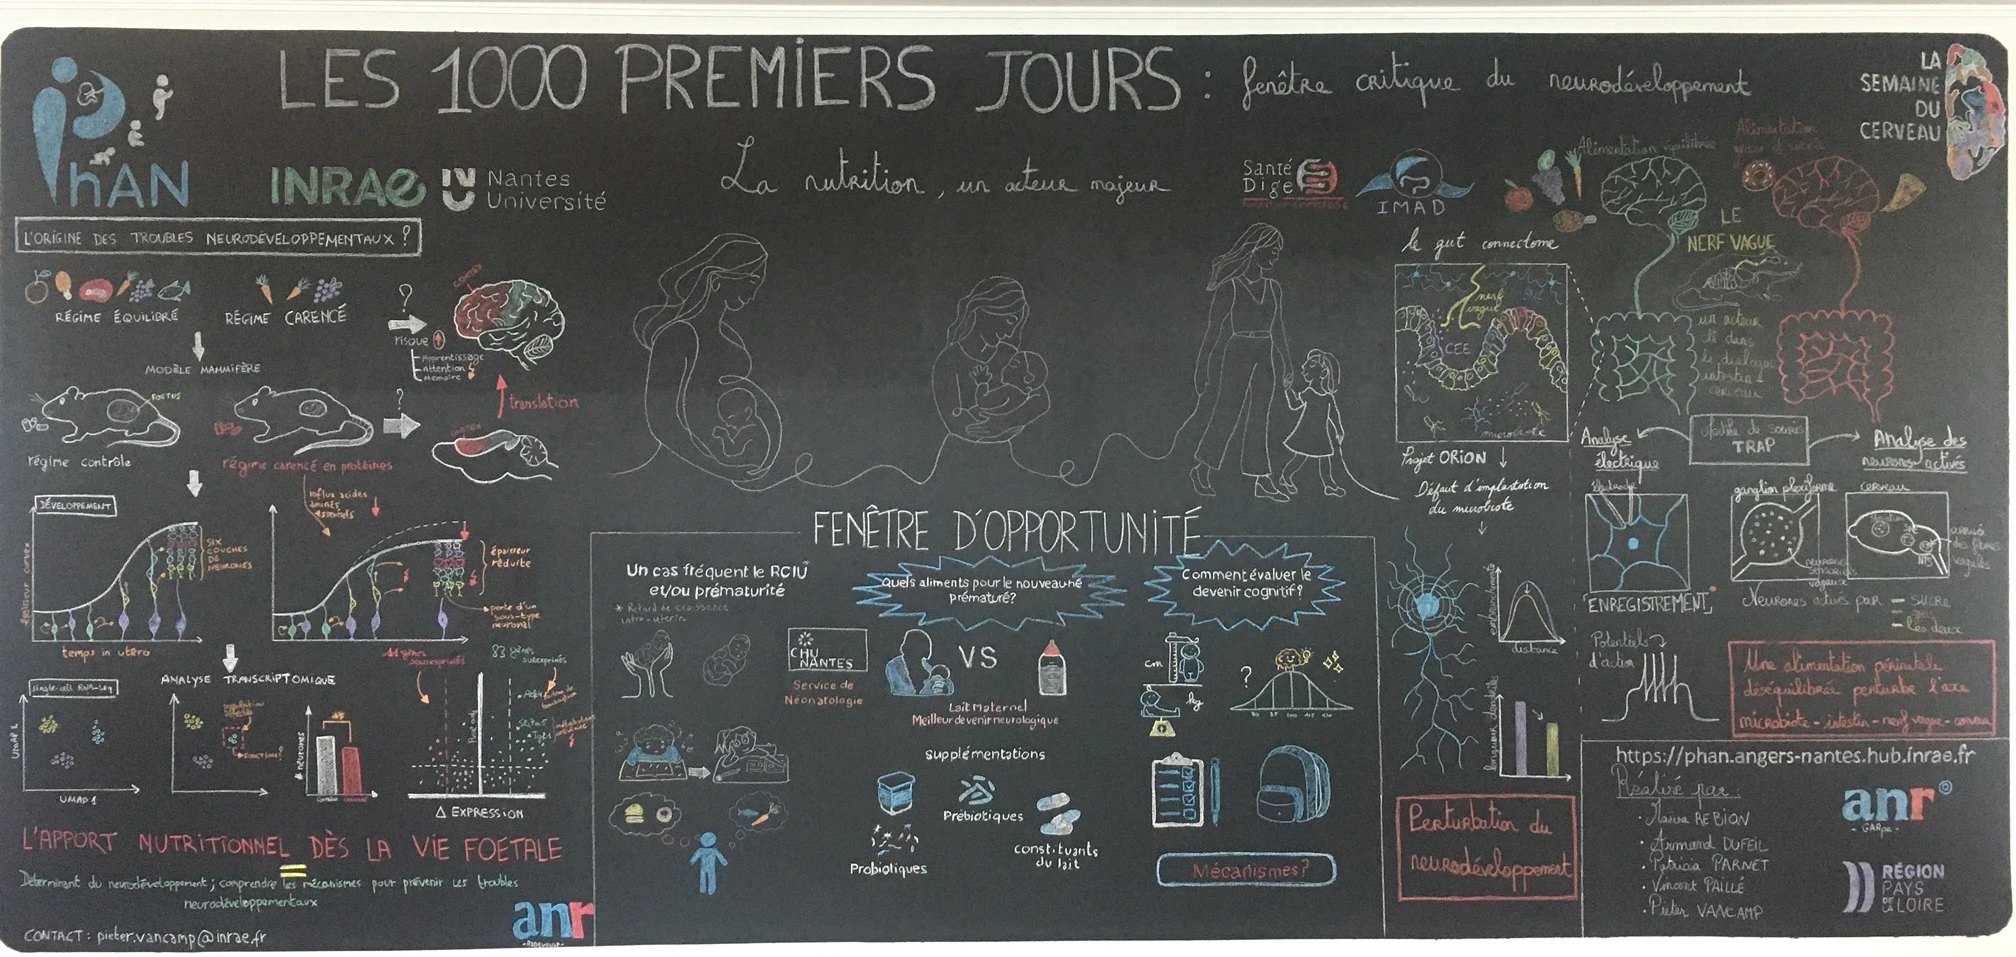 LES 1000 PREMIERS JOURS : fenêtre critique du neurodéveloppement
La nutrition, un acteur majeur
PhAN
INRAE
Nantes
Université
Santé
Dige
IMAD
LA
SEMAINE
DU
CERVEAU
L'ORIGINE DES TROUBLES NEURODÉVELOPPEMENTAUX ?
RÉGIME ÉQUILIBRÉ
RÉGIME CARENCÉ
?
risque
Apprentissage
Attention
Mémoire
CORTEX
MODÈLE MAMMIFÈRE
FOETUS
?
translation
CORTEX
régime contrôle
régime carencé en protéines
influx acides
aminés
essentiels
DÉVELOPPEMENT
épaisseur cortex
SIX
COUCHES
DE
NEURONES
temps in utero
épaisseur
réduite
perte d'un
sous-type
neuronal
11 gènes
sousexprimés
83 gènes
surexprimés
ANALYSE TRANSCRIPTOMIQUE
single-cell RNA-seq
UMAP 2
UMAP 1
population
affectée
FONCTION?
# neurones
Contrôle
Carencé
Δ EXPRESSION
L'APPORT NUTRITIONNEL DÈS LA VIE FOETALE
=
Déterminant du neurodéveloppement ; comprendre les mécanismes pour prévenir les troubles
neurodéveloppementaux
CONTACT : pieter.vancamp@inrae.fr
anr
FENÊTRE D'OPPORTUNITÉ
Un cas fréquent le RCIU*
et/ou prématurité
* Retard de croissance
intra-utérin
CHU
NANTES
Service de
Néonatologie
Quels aliments pour le nouveau né
prématuré?
VS
Lait Maternel
Meilleur devenir neurologique
Supplémentations
Prébiotiques
Probiotiques
constituants
du lait
Comment évaluer le
devenir cognitif?
cm
kg
?
Mécanismes?
le gut connectome
nerf
vague
CEE
microbiote
Projet ORION
Défaut d'implantation
du microbiote
embranchements
distance
longueur dendrites
Perturbation du
neurodéveloppement
Alimentation équilibrée
Alimentation
grasse et sucrée
LE
NERF VAGUE
un acteur
clé dans
le dialogue
intestin-
cerveau
Modèle de souris
TRAP
Analyse
électrique
Électrode
ENREGISTREMENT
Potentiels
d'action
Analyse des
neurones activés
ganglion plexiforme
cerveau
neurones
sensoriels
vagaux
NTS
arrivée
des fibres
vagales
Neurones activés par
SUCRE
gras
les deux
Une alimentation périnatale
déséquilibrée perturbe l'axe
microbiote - intestin - nerf vague - cerveau
https://phan.angers-nantes.hub.inrae.fr
Réalisé par :
REBION
• Armand DUFEIL
• Patricia PARNET
• Vincent PAILLÉ
• Pieter VANCAMP
anr
RÉGION
PAYS
DE LA LOIRE